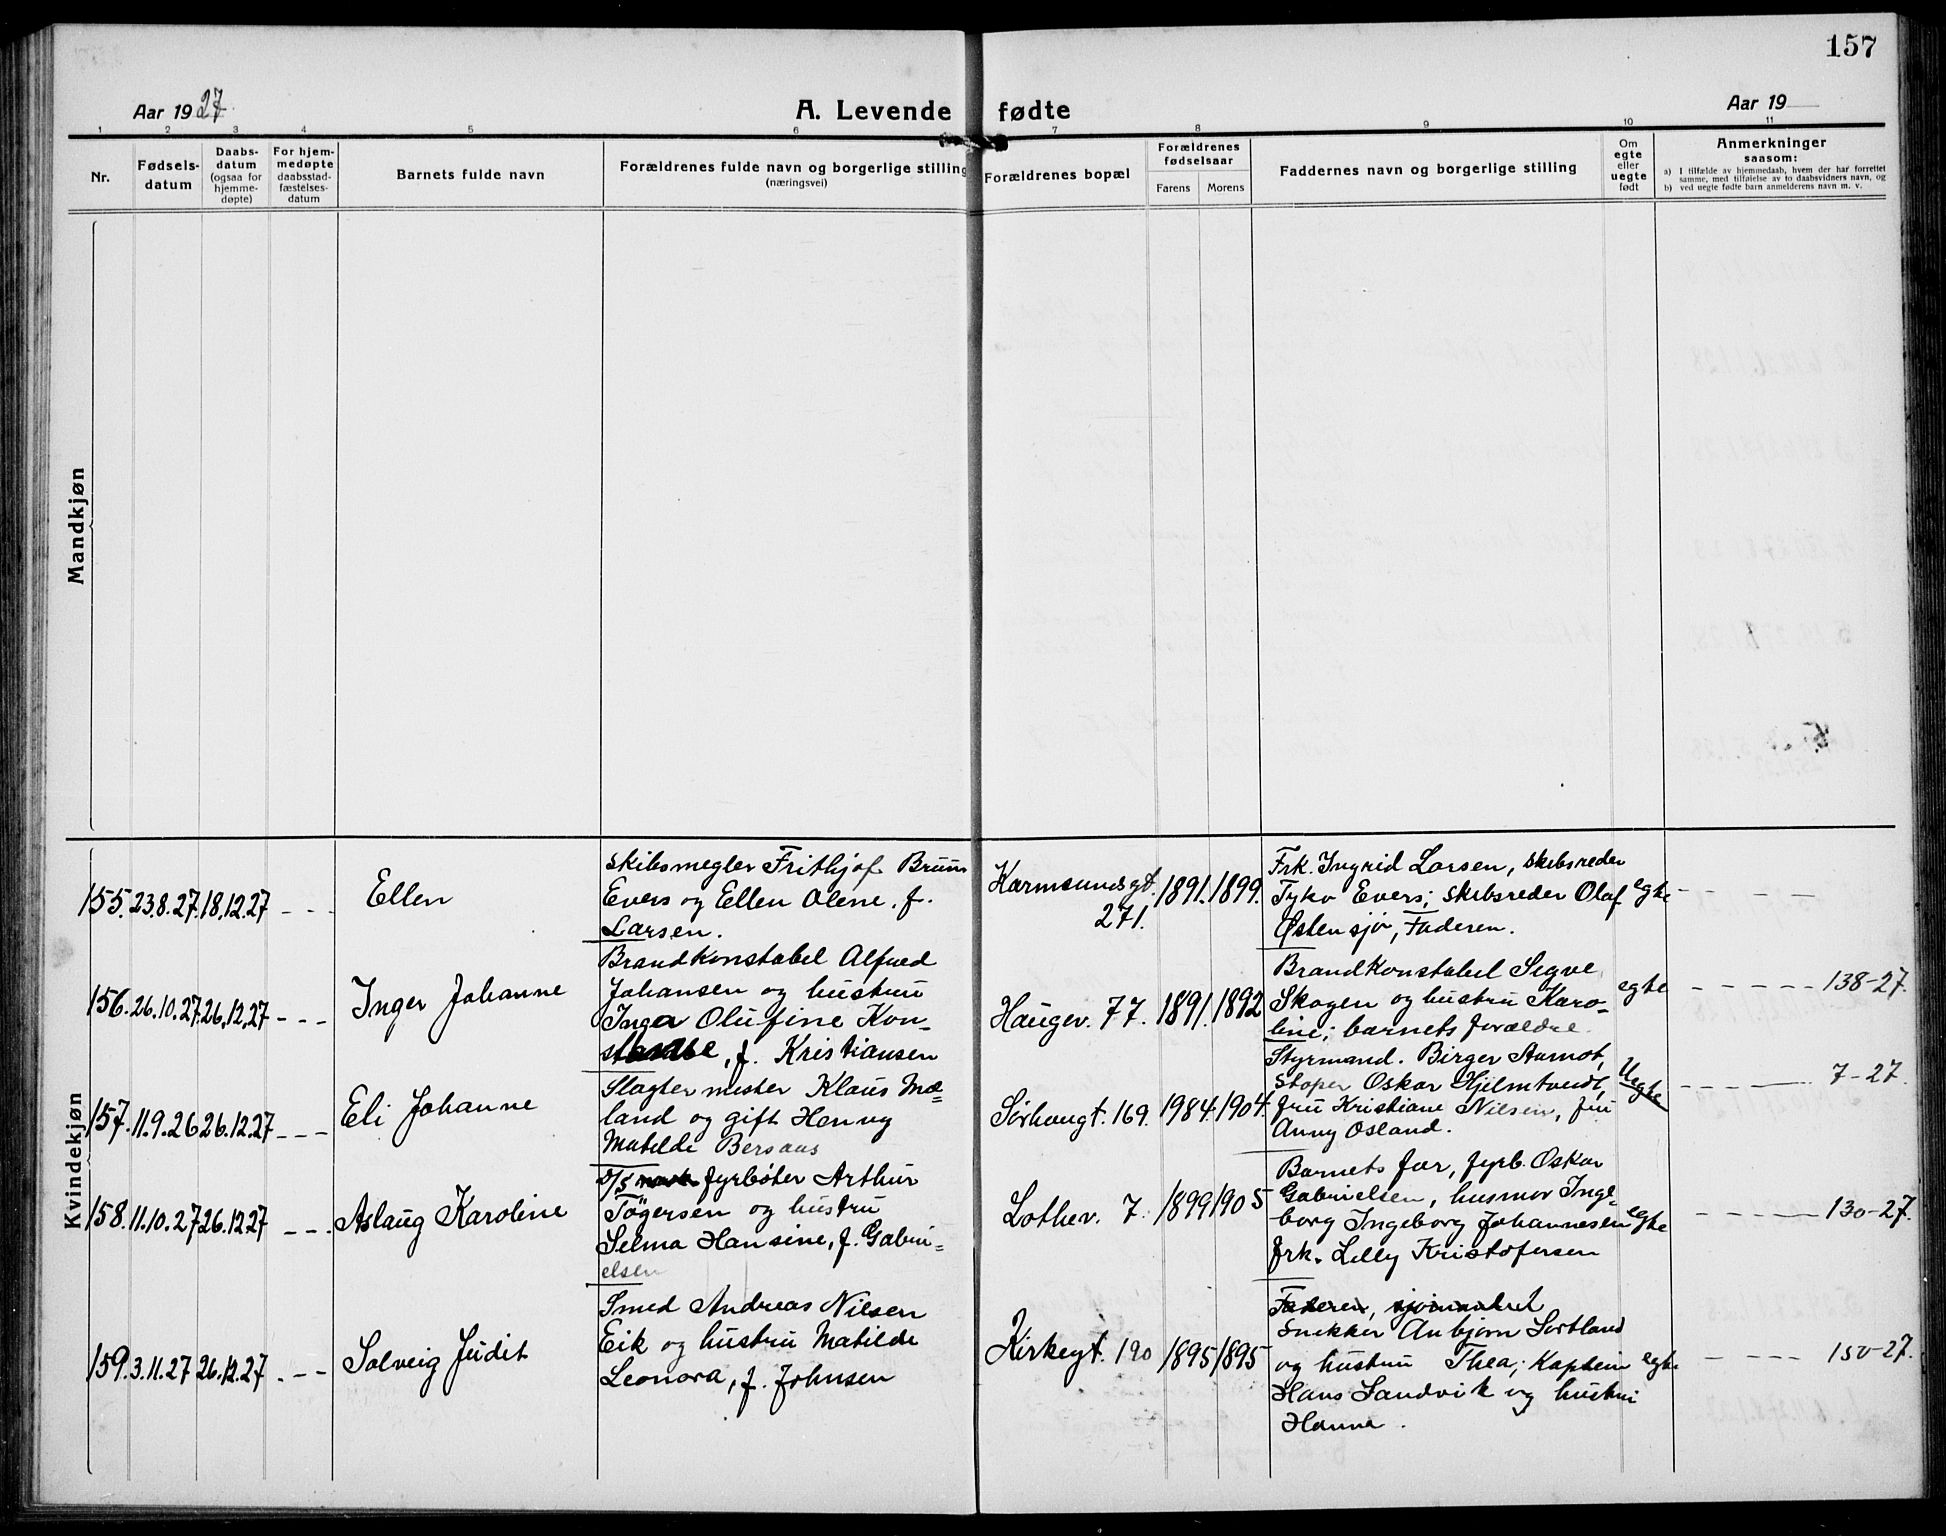 157
Aar 1927.
A. Levende fødte
Aar 19
1 2 3 4 5 6 7 8 9 10 11
Nr.
Fødsels-
datum
Daabs-
datum
(ogsaa for
hjemme-
døpte)
For hjem-
medøpte
daabsstad-
fæstelses-
datum
Barnets fulde navn
Forældrenes fulde navn og borgerlige stilling
(næringsvei)
Forældrenes bopæl
Forældrenes
fødselsaar
Farens Morens
Faddernes navn og borgerlige stilling
Om
egte
eller
uegte
født
Anmerkninger
saasom:
a) I tilfælde av hjemmedaab, hvem der har forrettet
samme, med tilføielse av to daabsvidners navn, og
b) ved uegte fødte barn anmelderens navn m. v.
Mandkjøn
Kvindekjøn
155. 23.8.27. 18.12.27 - - -
Ellen
Skibsmegler Frithjof Bruun
Evers og Ellen Olene, f.
Larsen.
Karmsundsgt.
271.
1891. 1899.
Frk. Ingrid Larsen, skibsreder
Tyko Evers; skibsreder Olaf
Østensjø, Faderen.
egte
- - - - -
156. 26.10.27. 26.12.27 - - -
Inger Johanne
Brandkonstabel Alfred
Johansen og hustru
Inger Olufine Kon-
stanse, f. Kristiansen
Haugev. 77.
1891. 1892
Brandkonstabel Sigve
Skogen og hustru Karo-
line; barnets forældre.
egte
- - - - - 138-27.
157. 11.9.26 26.12.27 - - -
Eli Johanne
Slagtermester Klaus Mæ-
land og gift Henny
Matilde Bersaas
Sørhaugt. 169.
1984. 1904.
Styrmand. Birger Aarnot,
Støper Oskar Hjelmtveidt,
fru Kristiane Nilsen, fru
Anny Osland.
Uegte
- - - - - 7-27.
158. 11.10.27 26.12.27 - - -
Aslaug Karoline
fyrbøter Arthur
Tøgersen og hustru
Selma Hansine, f. Gabri-
elsen
Lothev. 7.
1899 1905
Barnets far, fyrb. Oskar
Gabrielsen, husmor Inge-
borg Ingeborg Johannesen
frk. Lilly Kristofersen
egte
- - - - - 130-27.
159. 3.11.27 26.12.27 - - -
Solveig Judit
Smed Andreas Nilsen
Eik og hustru Matilde
Leonora, f. Johnsen
Kirkegt. 190
1895 1895
Faderen,
Snekker Anbjørn Sortland
og hustru Thea; Kaptein
Hans Sandvik og hustru
Hanna.
egte
- - - - 150-27.